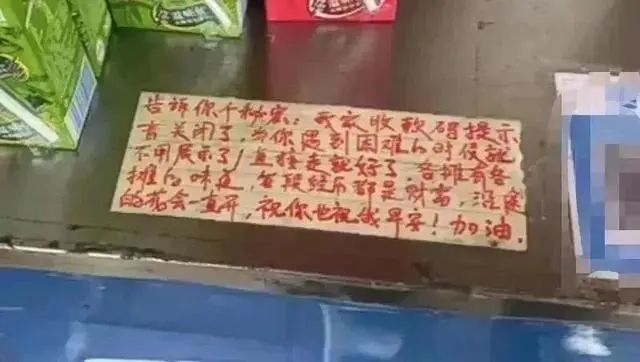 告诉你个秘密：我家收款码提示
音关闭了，当你遇到困难的时候就
不用展示了！直接走就好了，各摊有各
摊的味道，每段经历都是财富，沿途
的花会一直开，祝你也祝我早安！加油．